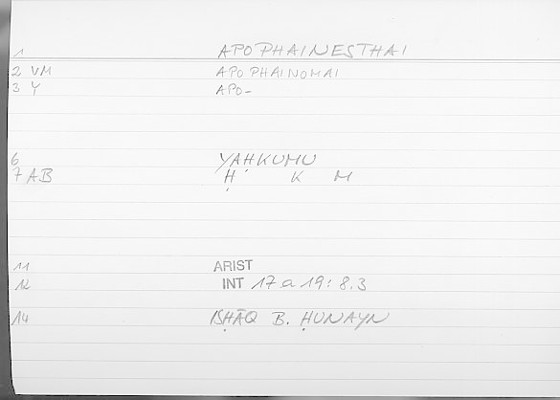 1 APOPHAINESTHAI
2 VM APOPHAINOMAI
3 Y APO-
6 YAḤKUMU
7 AB Ḥ K M
11 ARIST
12 INT 17 a 19: 8.3
14 ISḤĀQ B. ḤUNAYN